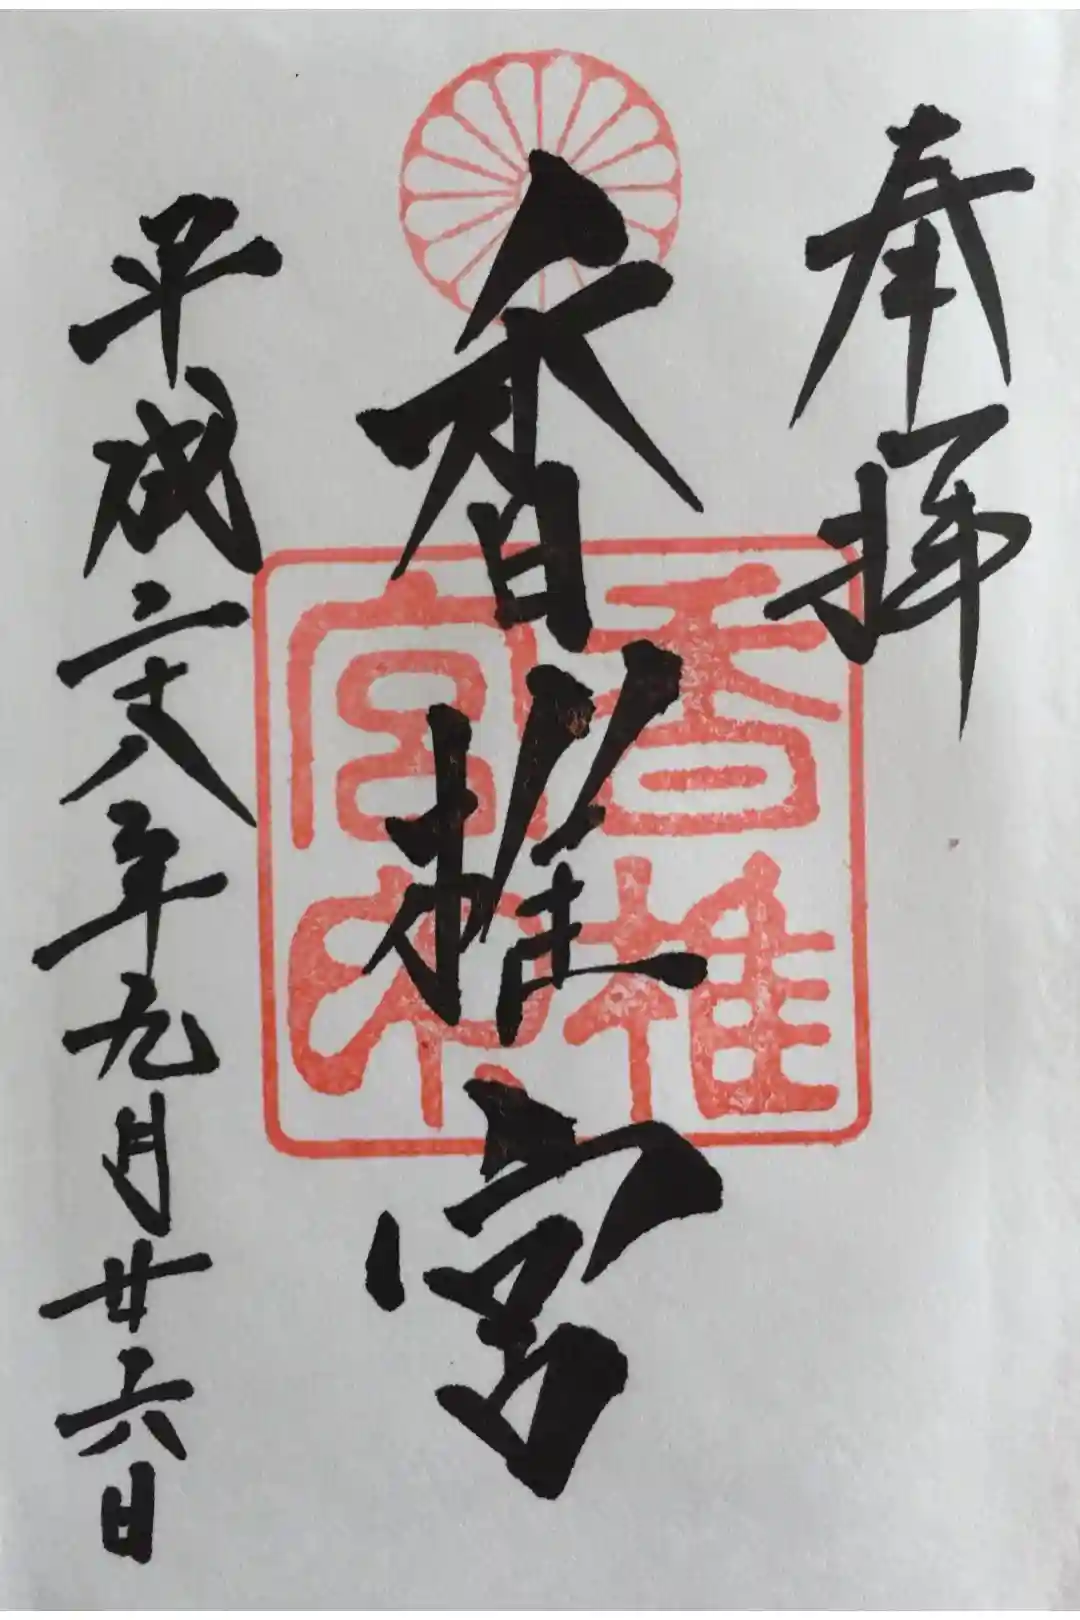 奉拝
香椎宮
香椎宮印
平成二十八年九月廿六日